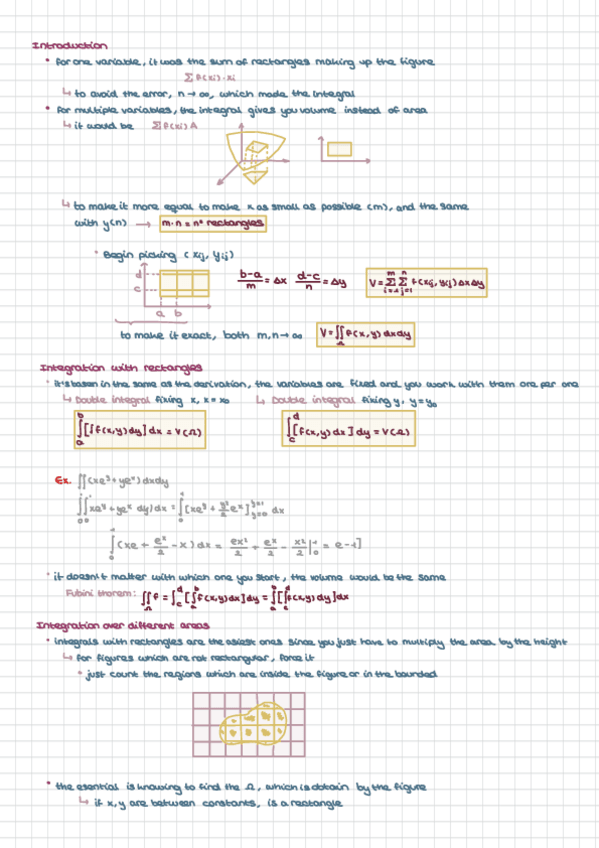 Introduction
• for one variable, it was the sum of rectangles making up the figure
Σ f(xi)·xi
↳ to avoid the error, n → ∞, which made the integral
• for multiple variables, the integral gives you volume instead of area
↳ it would be Σ f(xi) A
↳ to make it more equal to make x as small as possible (m), and the same
with y(n) → m·n = nº rectangles
• Begin picking (xij, yij)
d
c
a b
b-a/m = Δx d-c/n = Δy V = Σ(i=1 to m) Σ(j=1 to n) f(xij, yij) Δx Δy
to make it exact, both m,n → ∞ V = ∬Ω f(x,y) dxdy
Integration with rectangles
• it's basen in the same as the derivation, the variables are fixed and you work with them are per one
↳ Double integral fixing x, x = x₀ ↳ Double integral fixing y, y = y₀
∫ₐᵇ [∫ f(x,y) dy] dx = V(Ω) ∫_c^d [∫ f(x,y) dx] dy = V(Ω)
Ex. ∬ (xe^y + ye^x) dxdy
∫₀¹∫₀¹ xe^y + ye^x dy) dx = ∫₀¹ [xe^y + y²/2 e^x]_{y=0}^{y=1} dx
∫₀¹ (xe + e^x/2 - x) dx = ex²/2 + e^x/2 - x²/2 |₀¹ = e-1]
• it doesn't matter with which one you start, the volume would be the same
Fubini theorem: ∬Ω f = ∫_c^d [∫ₐᵇ f(x,y) dx] dy = ∫ₐᵇ [∫_c^d f(x,y) dy] dx
Integration over different areas
• integrals with rectangles are the asiest ones since you just have to multiply the area by the height
↳ for figures which are not rectangular, force it
• just count the regions which are inside the figure or in the bounded
• the esential is knowing to find the Ω, which is obtain by the figure
↳ if x,y are between constants, is a rectangle